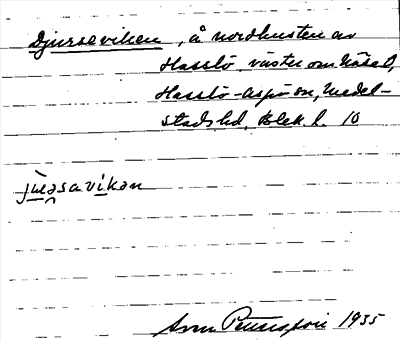 Djurseviken, å nordkusten av
Hasslö, väster om Näset,
Hasslö-Aspö sn, Medel-
stads hd, Blek. l. 10
juəsavikan
1935